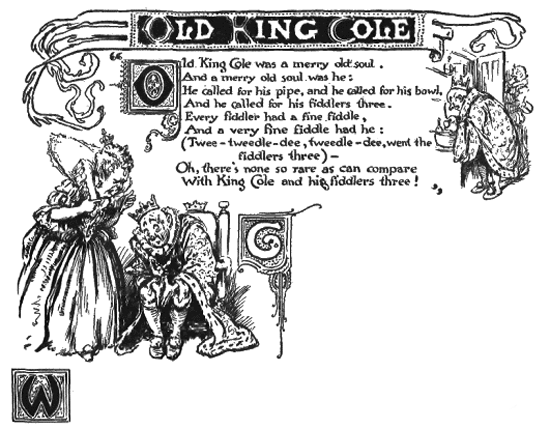 OLD KING COLE
"Old King Cole was a merry old soul.
And a merry old soul was he:
He called for his pipe, and he called for his bowl,
And he called for his fiddlers three.
Every fiddler had a fine fiddle,
And a very fine fiddle had he:
(Twee-tweedle-dee, tweedle-dee, went the
fiddlers three)-
Oh, there's none so rare as can compare
With King Cole and his fiddlers three! "
G
W